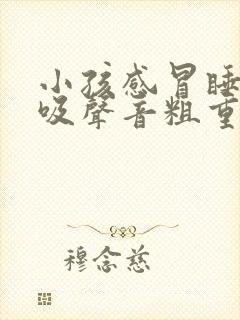 小孩感冒睡
吸聲音粗重
穆念慈